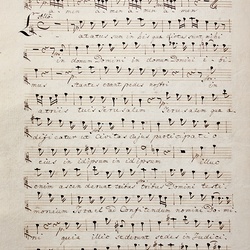 Laetatus sum in his quae dicta sunt mihi
in domum Domini in domum Domini ibi
mus Stantes erant pedes nostri in
atriis tuis Jerusalem Jerusalem quae ae
dificatur ut Civitas cujus participatio
ejus in idipsum in idipsum illuc
enim ascenderunt tribus tribus Domini testi
monium Israel ad Confitendum nomini Domi
ni quia illic sederunt sedes in Judici